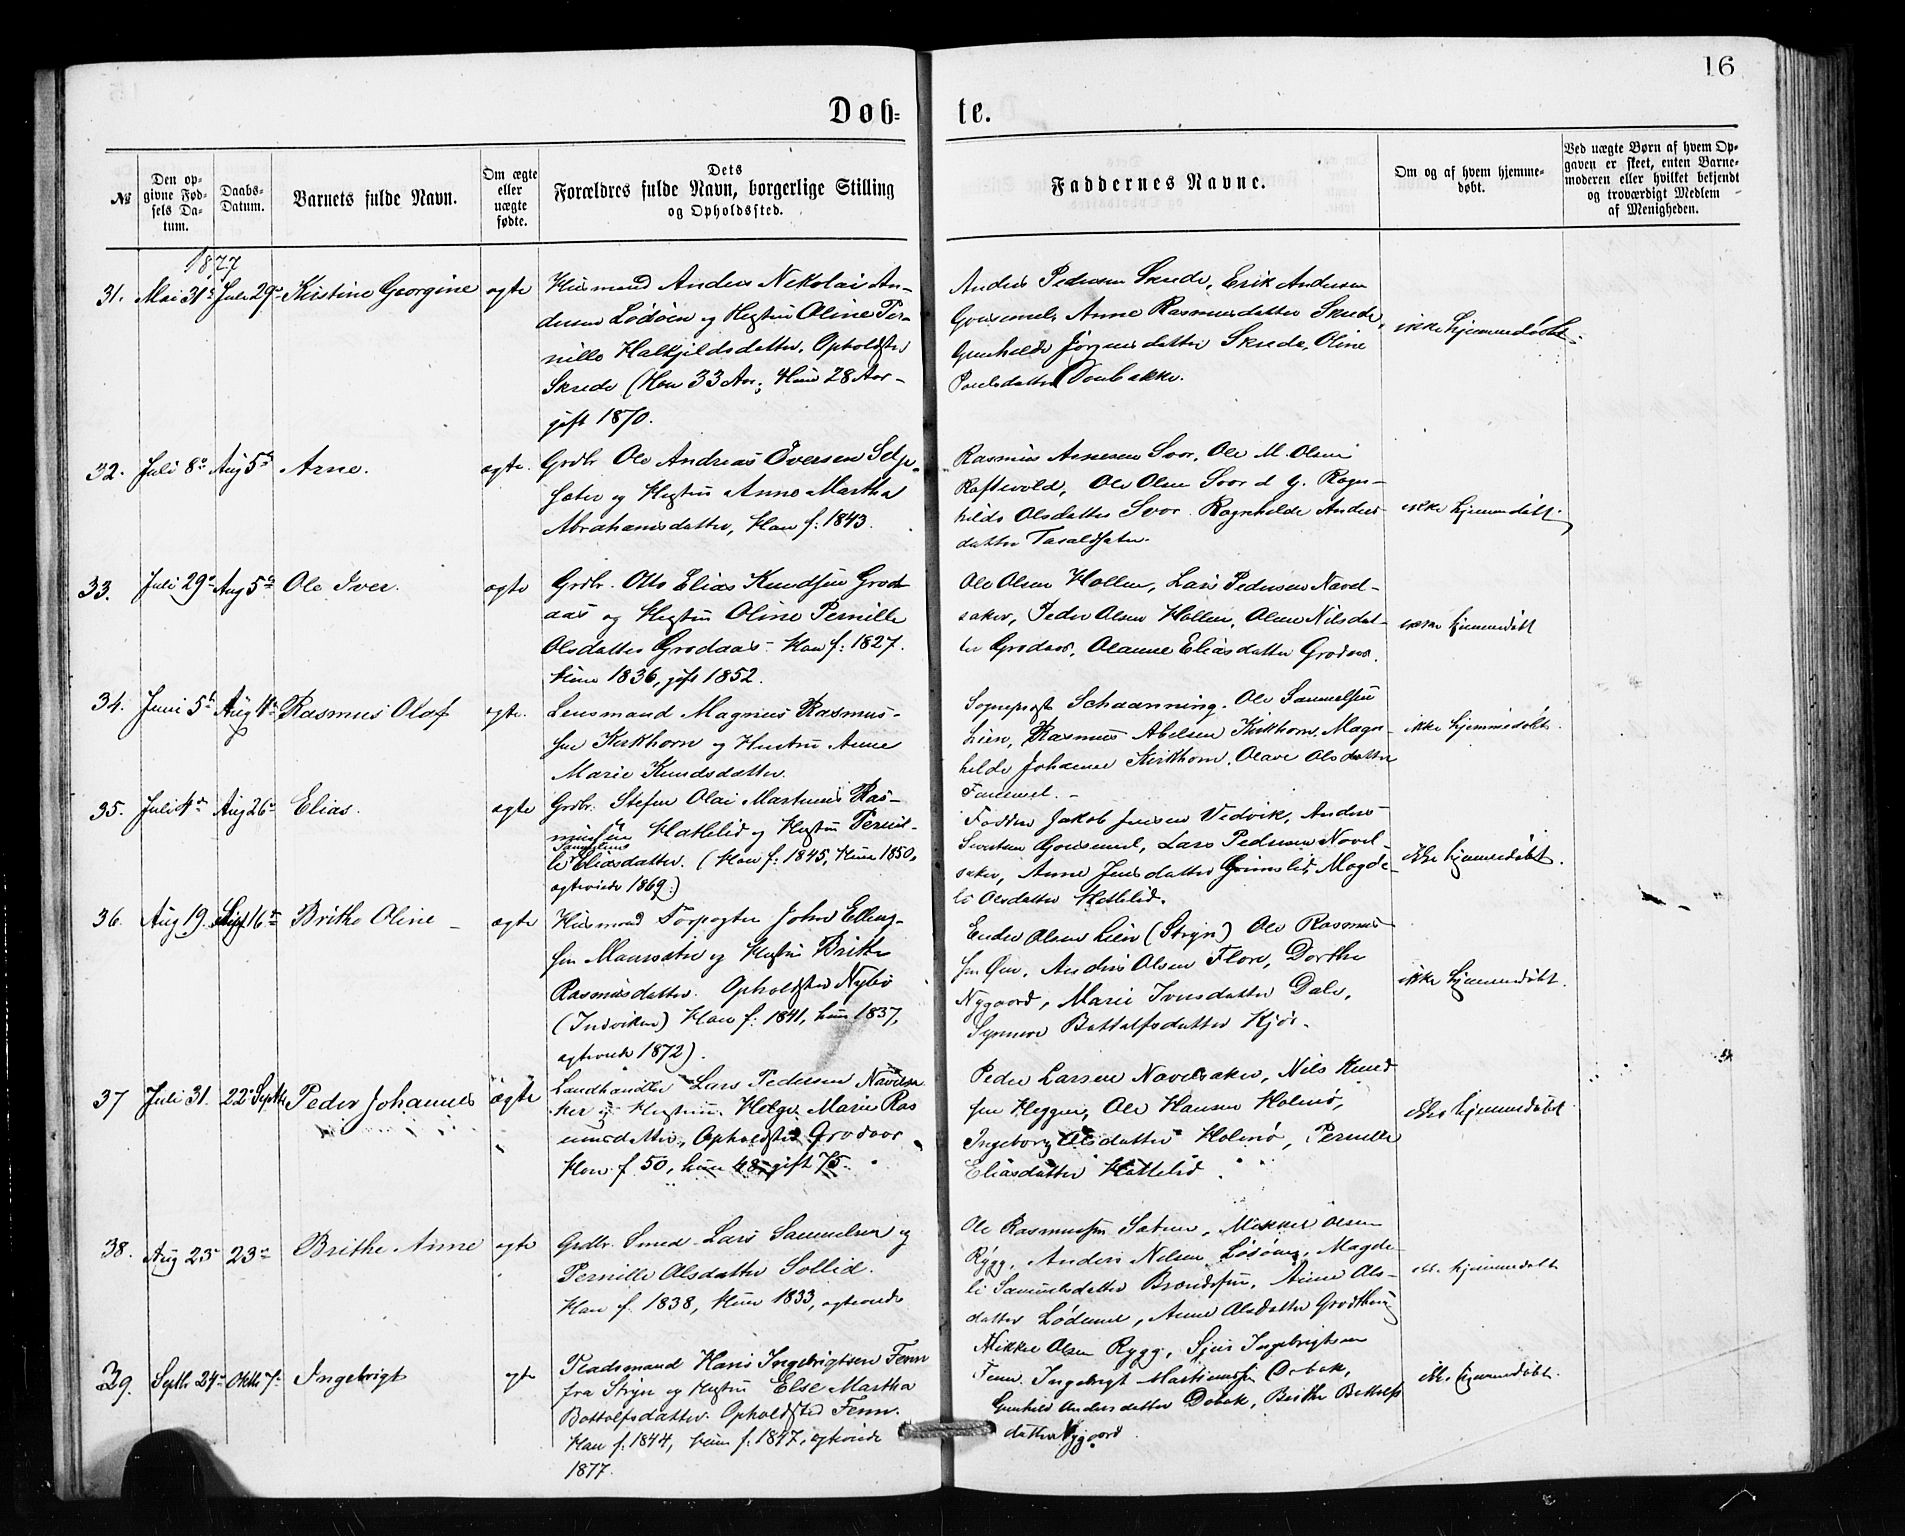 16
Døb-
te.
№
Den op-
givne Fød-
sels Da-
tum.
Daabs-
Datum.
Barnets fulde Navn.
Om ægte
eller
uægte
fødte.
Dets
Forældres fulde Navn, borgerlige Stilling
og Opholdssted.
Faddernes Navne.
Om og af hvem hjemme-
døbt.
Ved uægte Børn af hvem Op-
gaven er skeet, enten Barne-
moderen eller hvilket bekjendt
og troværdigt Medlem
af Menigheden.
1877
31. Mai 31te Juli 29de Kirstine Georgine ægte
Husmand Anders Nikolai An-
dersen Lødøen og Hustru Oline Per-
nille Halkjeldsdatter. Opholdssted
Skrede (Han 33 Aar, Hun 28 Aar -
gift 1870.
Anders Pedersen Skrede, Erik Andersen
Gausemel, Anne Rasmusdatter Skrede,
Gunhilde Jørgensdatter Skrede, Oline
Paulsdatter
ikke hjemmedøbt.
32. Juli 8de Aug 5te Arne. ægte.
Grdbr. Ole Andreas Iversen Selje-
sæter og Hustru Anne Martha
Abrahamsdatter, Han f. 1843.
Rasmus Arnesen Svor, Ole M. Olsen
Raftevold, Ole Olsen Svor d. y. Ragn-
hilde Olsdatter Svor. Ragnhilde Anders
datter
ikke hjemmedøbt.
33. Juli 29de Aug 5te Ole Iver. ægte
Grdbr. Otto Elias Knudsen Grod
aas og Hustru Oline Pernille
Olsdatter Grodaas - Han f. 1827.
hun 1836, gift 1852.
Ole Olsen Hollen, Lars Pedersen Navel-
saker, Peder Olsen Hollen, Oline Nilsdat-
ter Grodaas, Olianne Eliasdatter Grodaas.
ikke hjemmedøbt
34. Juni 5te Aug Rasmus Olaf ægte.
Lensmand Magnus Rasmus-
sen Kirkhorn og Hustru Anne
Marie Knudsdatter.
Sogneprest Schaanning. Ole Samuelsen
Lien, Rasmus Abelsen Kirkhorn, Magn-
hilde Johanne Kirkhorn, Olave Olsdatter
ikke hjemmedøbt.
35. Juli 4de Aug 26de Elias. ægte
Grdbr. Stefen Olai Martinus Ras-
mussen Hatlelid og Hustru Pernil-
le Eliasdatter. (Han f. 1845, Hun 1850,
ægteviede 1869.)
Faddere Jakob Jensen Vedvik, Anders
Sivertsen Gausemel, Lars Pedersen Navel-
saker, Anne Jensdatter Grimslid, Magde-
li Olsdatter Hatlelid.
ikke hjemmedøbt.
36. Aug 19. Sept 16de Brithe Oline - ægte
Husmand Forpagter John Elling-
sen Maursæter og Hustru Brithe
Rasmusdatter. Opholdssted Nybø
(Indviken) Han f. 1841, hun 1837,
ægteviede 1872).
Ender Olsen Lien (Stryn) Ole Rasmus-
sen Øen, Anders Olsen Flore, Dorthe
Nygaard, Marie Iversdatter Dale,
Synneve Bottolfsdatter Kjøs.
ikke hjemmedøbt.
37 Juli 31. 22de Septbr Peder Johannes ægte
Landhandler Lars Pedersen Navelsa
ker og Hustru Helge Marie Ras
musdatter, Opholdssted Grodaas
Han f. 50, hun 48, gift 75.
Peder Larsen Navelsaker, Nils Knud
sen Heggen, Ole Hansen Holmø,
Ingeborg Olsdatter Holmø, Pernille
Eliasdatter Hatlelid.
ikke hjemmedøbt
38. Aug 23de 23de Brithe Anne ægte
Grdbr. Smed Lars Samuelsen og
Pernille Olsdatter Sollid.
Han f. 1838, Hun 1833, ægteviede
Ole Rasmussen Sætren, Mikkel Olsen
Rygg, Anders Nelsen Lødøen, Magde-
li Samuelsdatter Anne Ols-
datter Lødemel, Anne Olsdatter
hjemmedøbt
39. Septbr 24de Oktbr 7de Ingebrigt ægte
Pladsmand Hans Ingebrigtsen Fenn
fra Stryn og Hustru Else Martha
Bottolfsdatter. Opholdssted Fenn.
Han f. 1844, hun f. 1847, ægteviede
1877.
Mikkel Olsen Rygg, Sjur Ingebrigtsen
Fenn. Ingebrigt Martinussen
Gunhild Andersdatter Brithe Bottolfs
datter Nygaard
ikke hjemmedøbt.